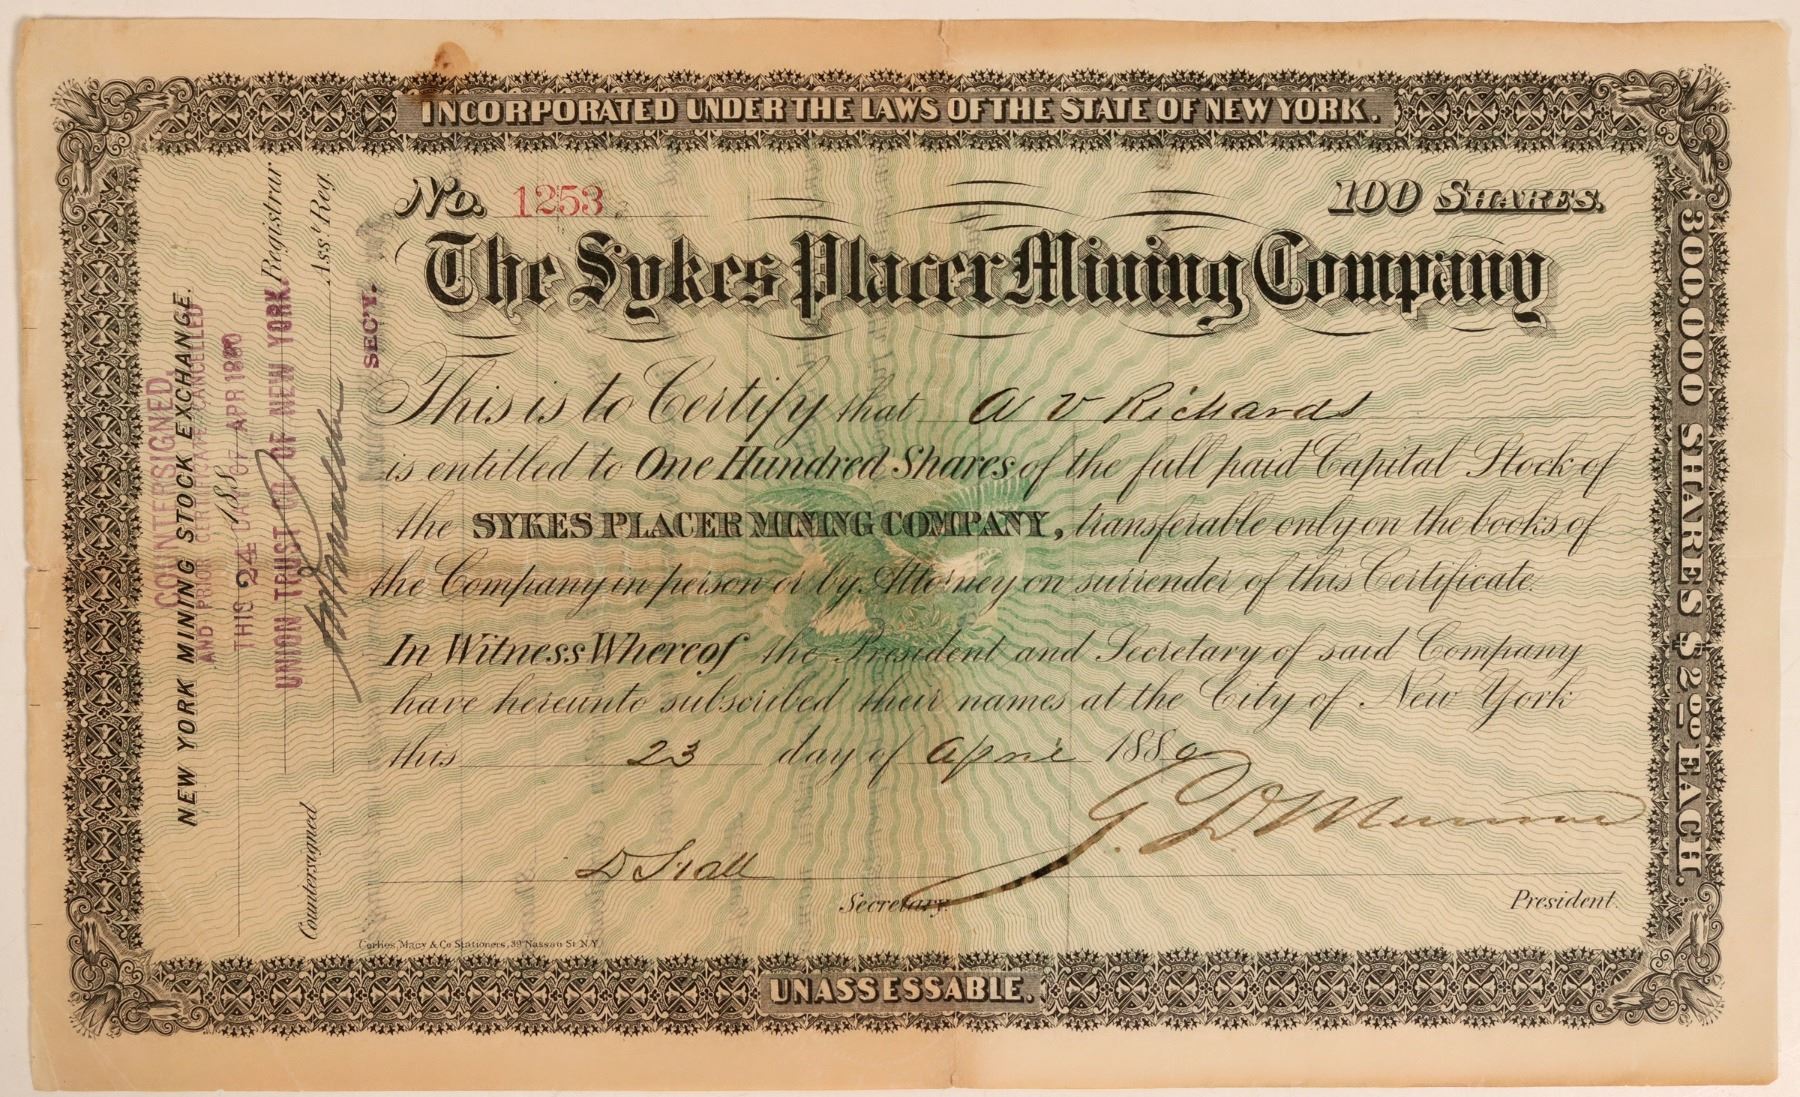 INCORPORATED UNDER THE LAWS OF THE STATE OF NEW YORK.
No. 1253
100 SHARES.
The Sykes Placer Mining Company
This is to Certify that A V Richards
is entitled to One Hundred Shares of the full paid Capital Stock of
the SYKES PLACER MINING COMPANY, transferable only on the books of
the Company in person or by Attorney on surrender of this Certificate.
In Witness Whereof the President and Secretary of said Company
have hereunto subscribed their names at the City of New York
this 23 day of April 1880
Secretary.
President.
Corlies, Macy & Co Stationers, 39 Nassau St N.Y.
UNASSESSABLE.
300,000 SHARES $2.00 EACH.
NEW YORK MINING STOCK EXCHANGE.
COUNTERSIGNED,
AND PRIOR CERTIFICATE CANCELLED
THIS 24 DAY OF APR 1880
UNION TRUST CO. OF NEW YORK.
Registrar
Ass't Reg.
SEC'Y.
Countersigned
188